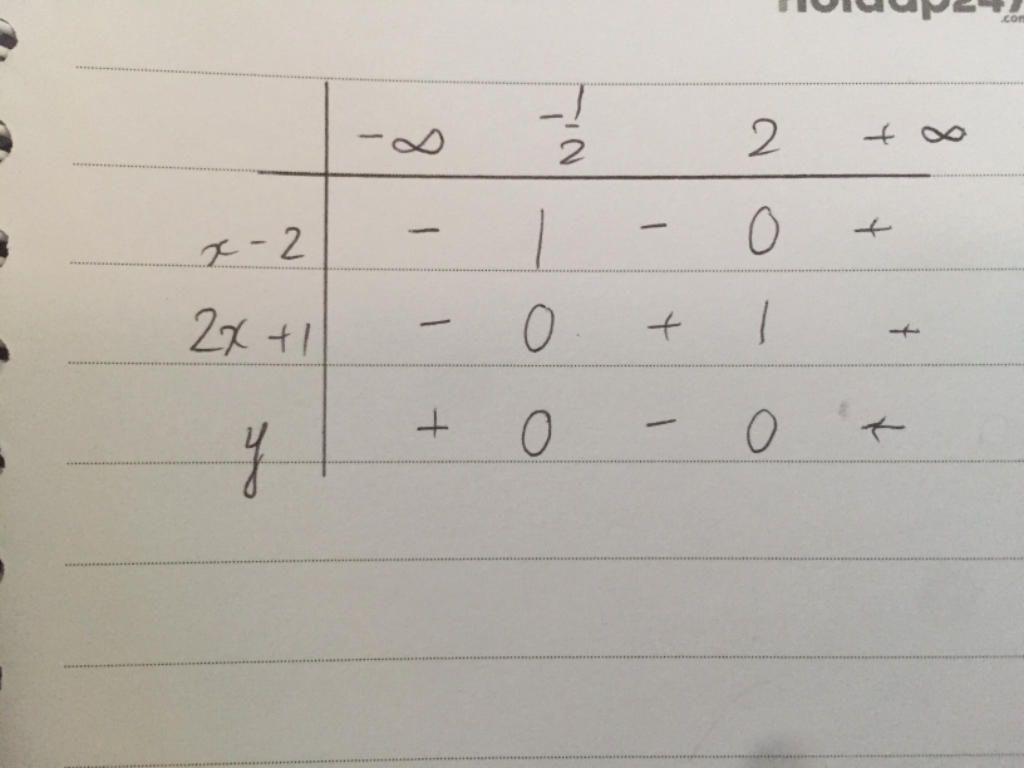 Hoidap247
.com
-∞ -1/2 2 +∞
x-2 - | - 0 +
2x+1 - 0 + | +
y + 0 - 0 +